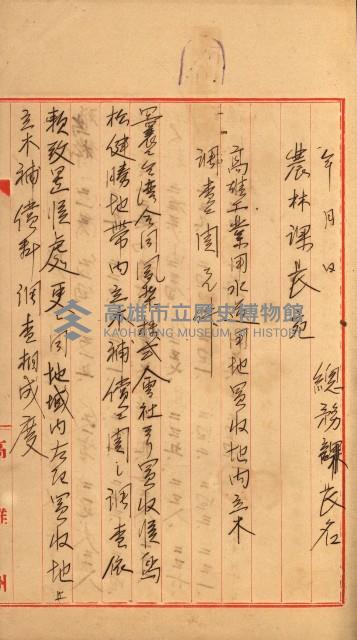 年月日
總務課長名
農林課長宛
高雄工業用水用地買收地內立木
調查ニ関スル件
曩ニ台湾合同鳳梨株式會社ヨリ買收候鳥
松健勝地帶內立木補償ニ関シ調查依
賴致置候處更ニ同地域內左記買收地上
立木補償料調查相成度
高雄州
高雄市立歷史博物館
KAOHSIUNG MUSEUM OF HISTORY